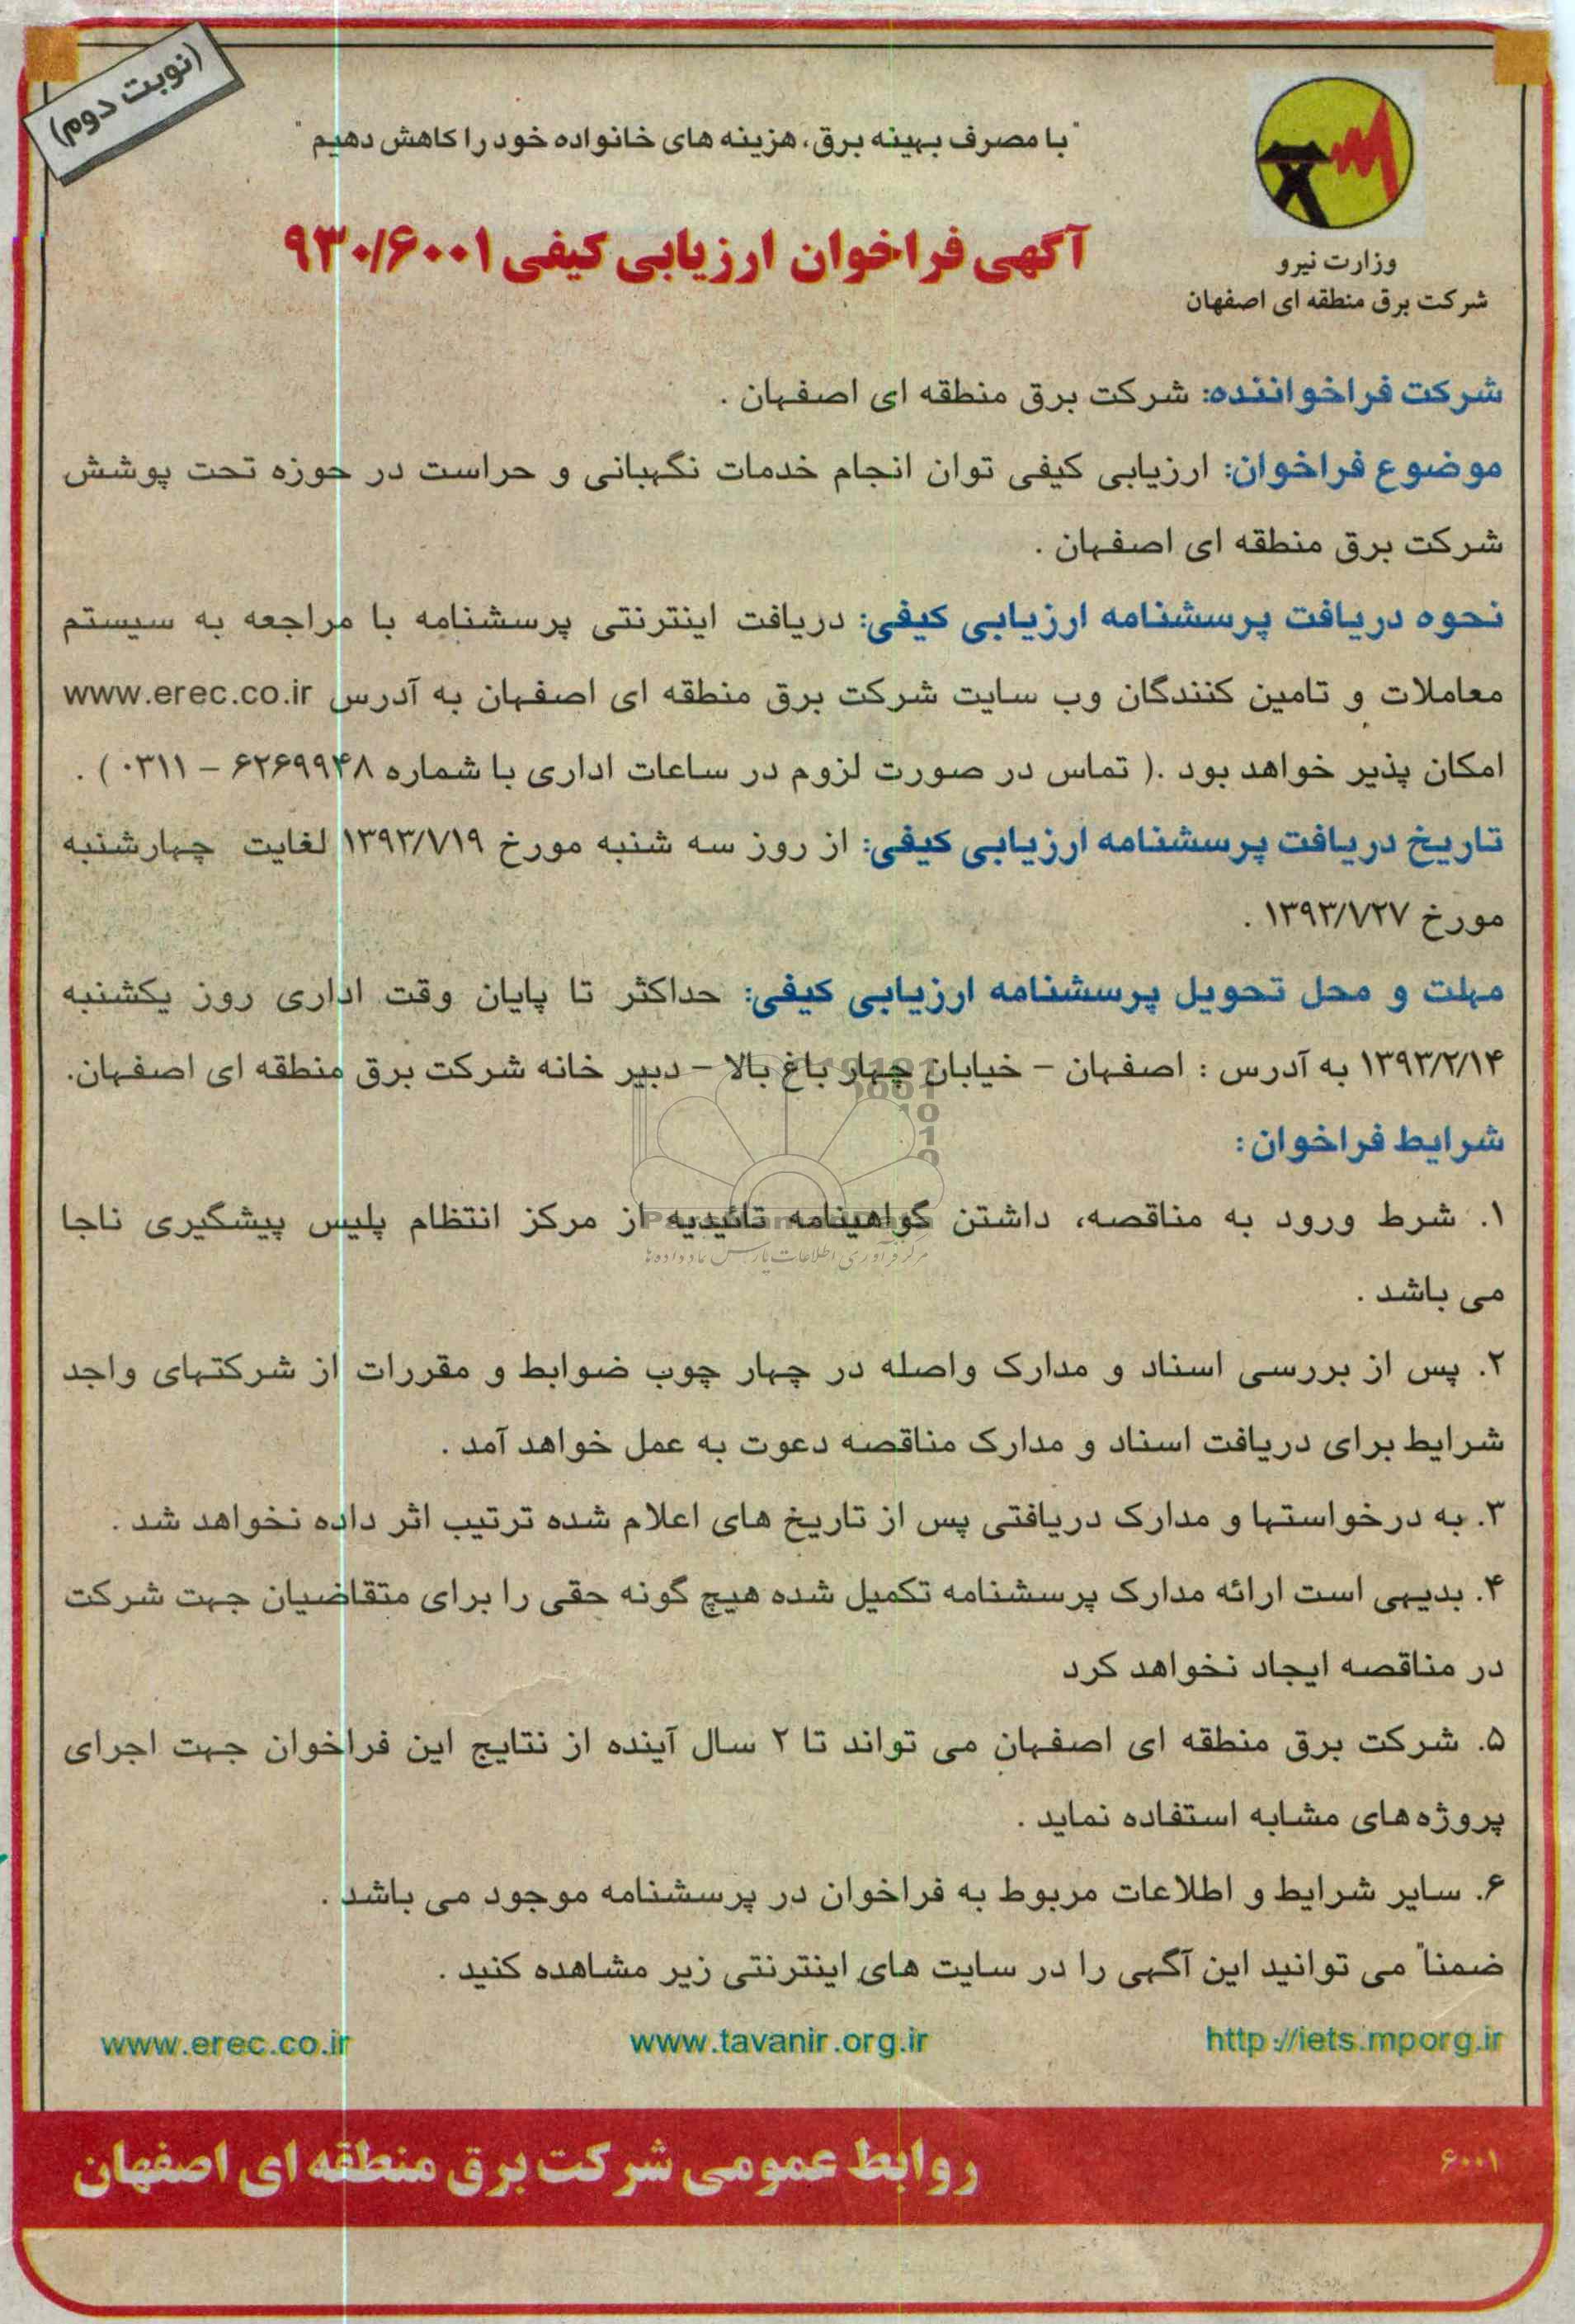 (نوبت دوم)
"با مصرف بهینه برق، هزینه های خانواده خود را کاهش دهیم"
وزارت نیرو
شرکت برق منطقه ای اصفهان
آگهی فراخوان ارزیابی کیفی ۹۳۰/۶۰۰۱
شرکت فراخواننده: شرکت برق منطقه ای اصفهان .
موضوع فراخوان: ارزیابی کیفی توان انجام خدمات نگهبانی و حراست در حوزه تحت پوشش
شرکت برق منطقه ای اصفهان .
نحوه دریافت پرسشنامه ارزیابی کیفی: دریافت اینترنتی پرسشنامه با مراجعه به سیستم
معاملات و تامین کنندگان وب سایت شرکت برق منطقه ای اصفهان به آدرس www.erec.co.ir
امکان پذیر خواهد بود .( تماس در صورت لزوم در ساعات اداری با شماره ۶۲۶۹۹۴۸ – ۰۳۱۱ ) .
تاریخ دریافت پرسشنامه ارزیابی کیفی: از روز سه شنبه مورخ ۱۳۹۳/۷/۱۹ لغایت چهارشنبه
مورخ ۱۳۹۳/۷/۲۷ .
مهلت و محل تحویل پرسشنامه ارزیابی کیفی: حداکثر تا پایان وقت اداری روز یکشنبه
۱۳۹۳/۲/۱۴ به آدرس : اصفهان – خیابان چهار باغ بالا – دبیر خانه شرکت برق منطقه ای اصفهان.
شرایط فراخوان:
۱. شرط ورود به مناقصه، داشتن گواهینامه تائیدیه از مرکز انتظام پلیس پیشگیری ناجا
می باشد .
۲. پس از بررسی اسناد و مدارک واصله در چهار چوب ضوابط و مقررات از شرکتهای واجد
شرایط برای دریافت اسناد و مدارک مناقصه دعوت به عمل خواهد آمد .
۳. به درخواستها و مدارک دریافتی پس از تاریخ های اعلام شده ترتیب اثر داده نخواهد شد .
۴. بدیهی است ارائه مدارک پرسشنامه تکمیل شده هیچ گونه حقی را برای متقاضیان جهت شرکت
در مناقصه ایجاد نخواهد کرد
۵. شرکت برق منطقه ای اصفهان می تواند تا ۲ سال آینده از نتایج این فراخوان جهت اجرای
پروژه های مشابه استفاده نماید .
۶. سایر شرایط و اطلاعات مربوط به فراخوان در پرسشنامه موجود می باشد .
ضمناً می توانید این آگهی را در سایت های اینترنتی زیر مشاهده کنید .
http://iets.mporg.ir www.tavanir.org.ir www.erec.co.ir
۶۰۰۱ روابط عمومی شرکت برق منطقه ای اصفهان